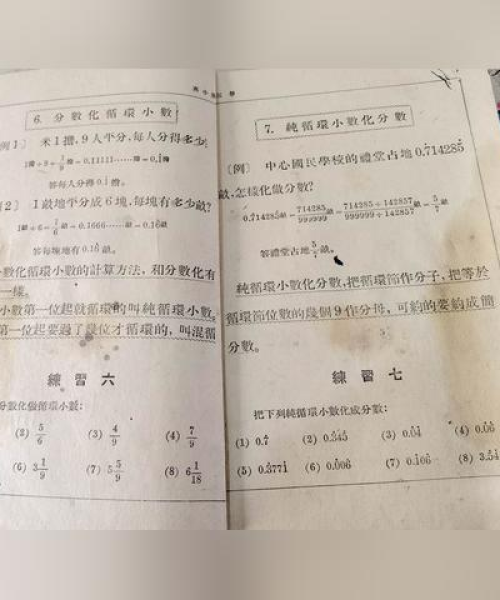 6. 分數化循環小數
例1〕 米1擔,9人平分,每人分得多少?
1擔÷9=1/9擔=0.11111……擔=0.1̇擔
答每人分得0.1̇擔。
2〕 1畝地平分成6塊,每塊有多少畝?
1畝÷6=1/6畝=0.1666……畝=0.16̇畝
答每塊地有0.16̇畝。
數化循環小數的計算方法,和分數化有
一樣。
小數第一位起就循環的叫純循環小數,
第一位起要過了幾位才循環的,叫混循
練習六
分數化做循環小數:
(2) 5/6 (3) 4/9 (4) 7/9
(6) 3 1/9 (7) 5 5/9 (8) 6 1/18
7. 純循環小數化分數
〔例〕 中心國民學校的禮堂占地0.7̇14285̇
畝,怎樣化做分數?
0.7̇14285̇畝=714285/999999畝=714285÷142857/999999÷142857畝=5/7畝
答禮堂占地5/7畝。
純循環小數化分數,把循環節作分子,把等於
循環節位數的幾個9作分母,可約的要約成簡
分數。
練習七
把下列純循環小數化成分數:
(1) 0.7̇ (2) 0.3̇45̇ (3) 0.0̇4̇ (4) 0.0̇6̇
(5) 0.3̇771̇ (6) 0.0̇06̇ (7) 0.1̇06̇ (8) 3.5̇4̇